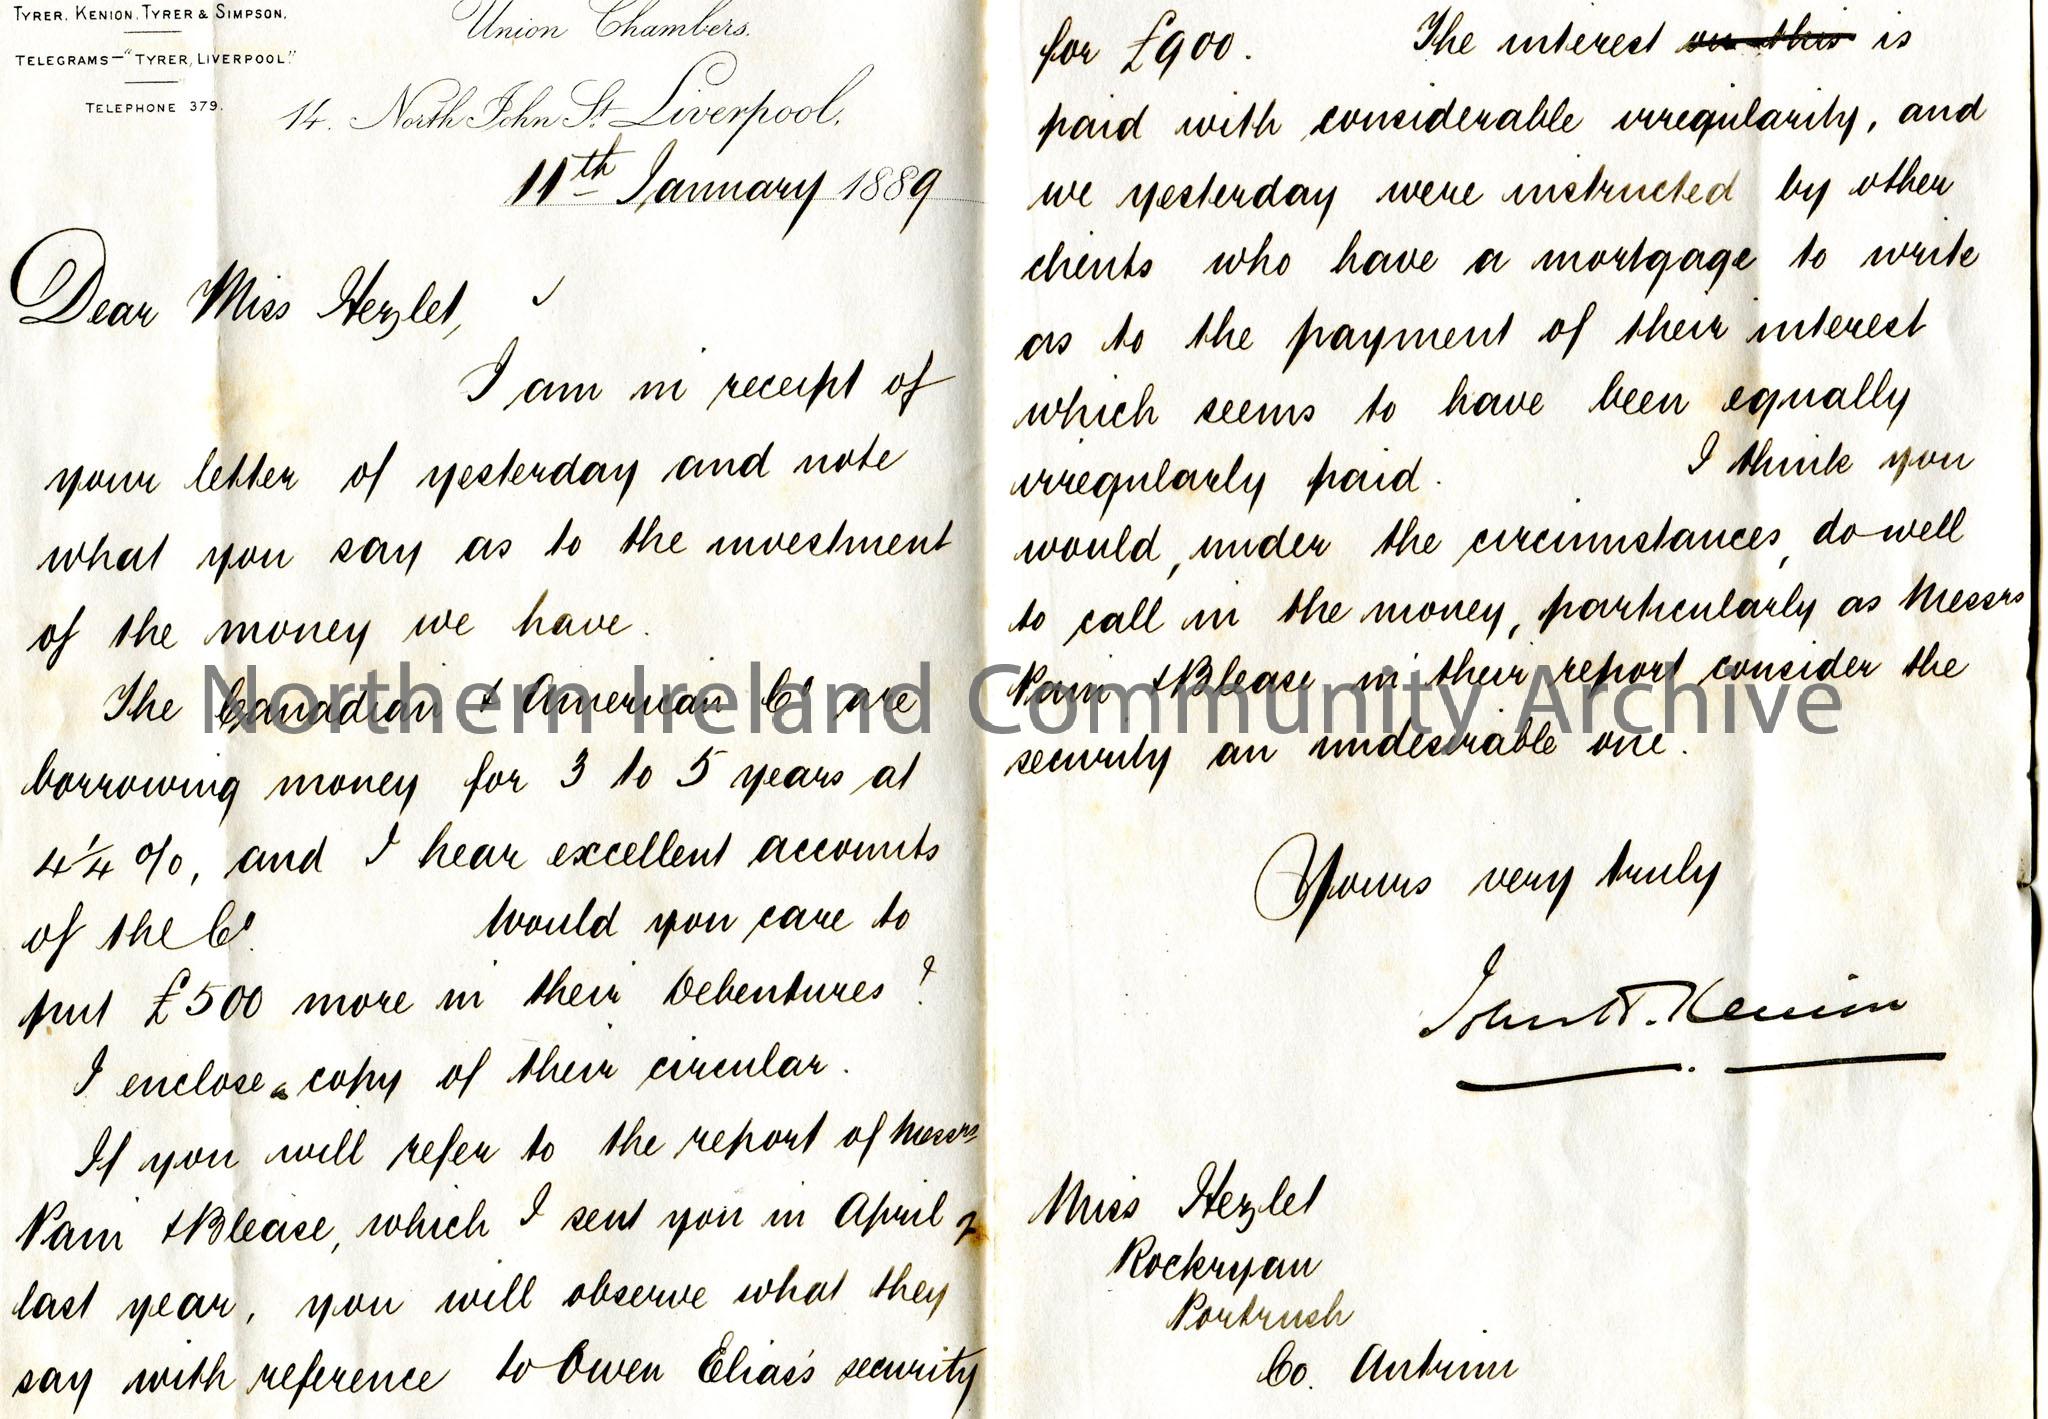 TYRER, KENION, TYRER & SIMPSON.
TELEGRAMS—"TYRER, LIVERPOOL."
TELEPHONE 379.
Union Chambers.
14. North John St. Liverpool,
11th January 1889
Dear Miss Hezlet,
I am in receipt of
your letter of yesterday and note
what you say as to the investment
of the money we have.
The Canadian & American Co are
borrowing money for 3 to 5 years at
4 1/4 %, and I hear excellent accounts
of the Co. Would you care to
put £500 more in their Debentures?
I enclose a copy of their circular.
If you will refer to the report of Messrs
Pain & Blease, which I sent you in April
last year, you will observe what they
say with reference to Owen Elias's security
for £900. The interest on this is
paid with considerable irregularity, and
we yesterday were instructed by other
clients who have a mortgage to write
as to the payment of their interest
which seems to have been equally
irregularly paid. I think you
would, under the circumstances, do well
to call in the money, particularly as Messrs
Pain & Blease in their report consider the
security an undesirable one.
Yours very truly
John T. Kenion
Miss Hezlet
Rockryan
Portrush
Co. Antrim
Northern Ireland Community Archive